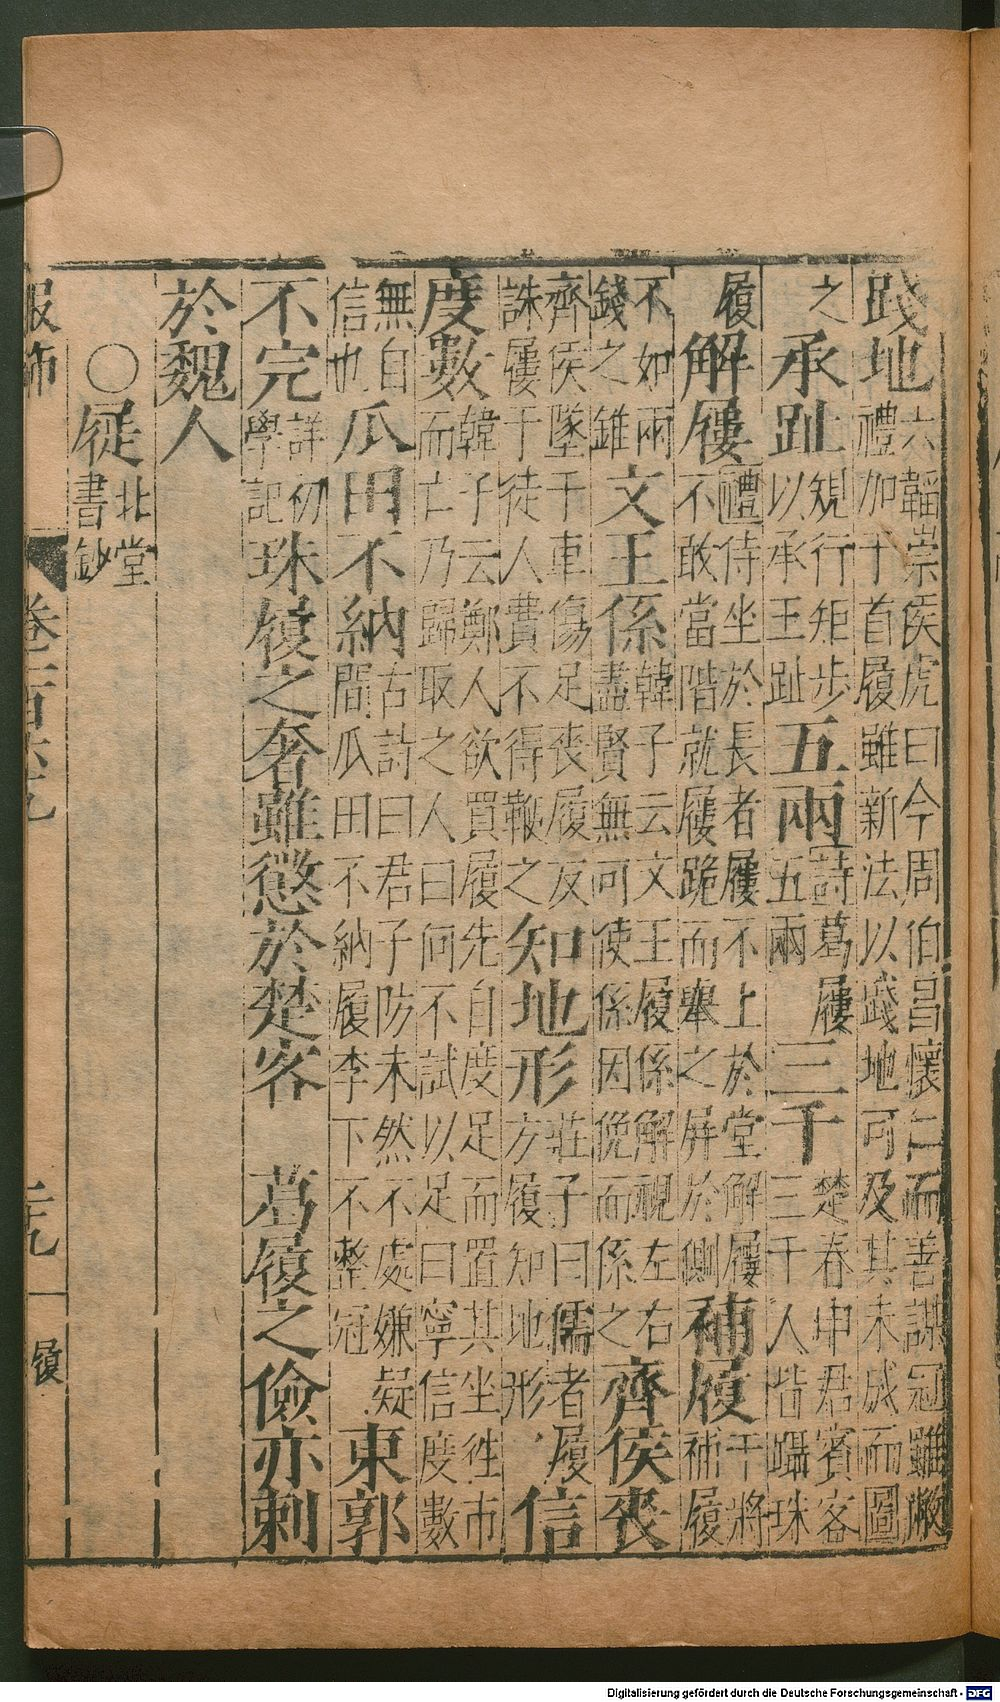 踐地六韜崇侯虎曰今周伯昌懷仁而善謀冠雖敝禮加于首履雖新法以踐地可及其未成而圖
之承趾規行矩步以承王趾五兩詩葛屨五兩三千楚春申君賓客三千人皆躡珠
履解屨禮侍坐於長者屨不上於堂解屨不敢當階就屨跪而舉之屏於側補履干將補履
不如兩錢之錐文王係韓子云文王履係解視左右盡賢無可使係因俛而係之齊侯喪
齊侯墜于車傷足喪履反誅屨于徒人費不得鞭之知地形莊子曰儒者履方履知地形信
度數韓子云鄭人欲買履先自度足而置其坐徃市而亡乃歸取之人曰何不試以足曰寧信度數
無自信也瓜田不納古詩曰君子防未然不處嫌疑間瓜田不納履李下不整冠東郭
不完詳初學記珠履之奢雖懲於楚客 葛履之儉亦刺
於魏人
○屣北堂書鈔
服飾 履
Digitalisierung gefördert durch die Deutsche Forschungsgemeinschaft - DFG